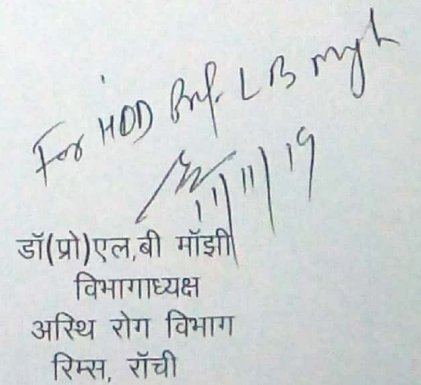 For HOD Prof. L B
11/11/19
डॉ(प्रो)एल,बी मॉझी
विभागाध्यक्ष
अस्थि रोग विभाग
रिम्स, रॉची